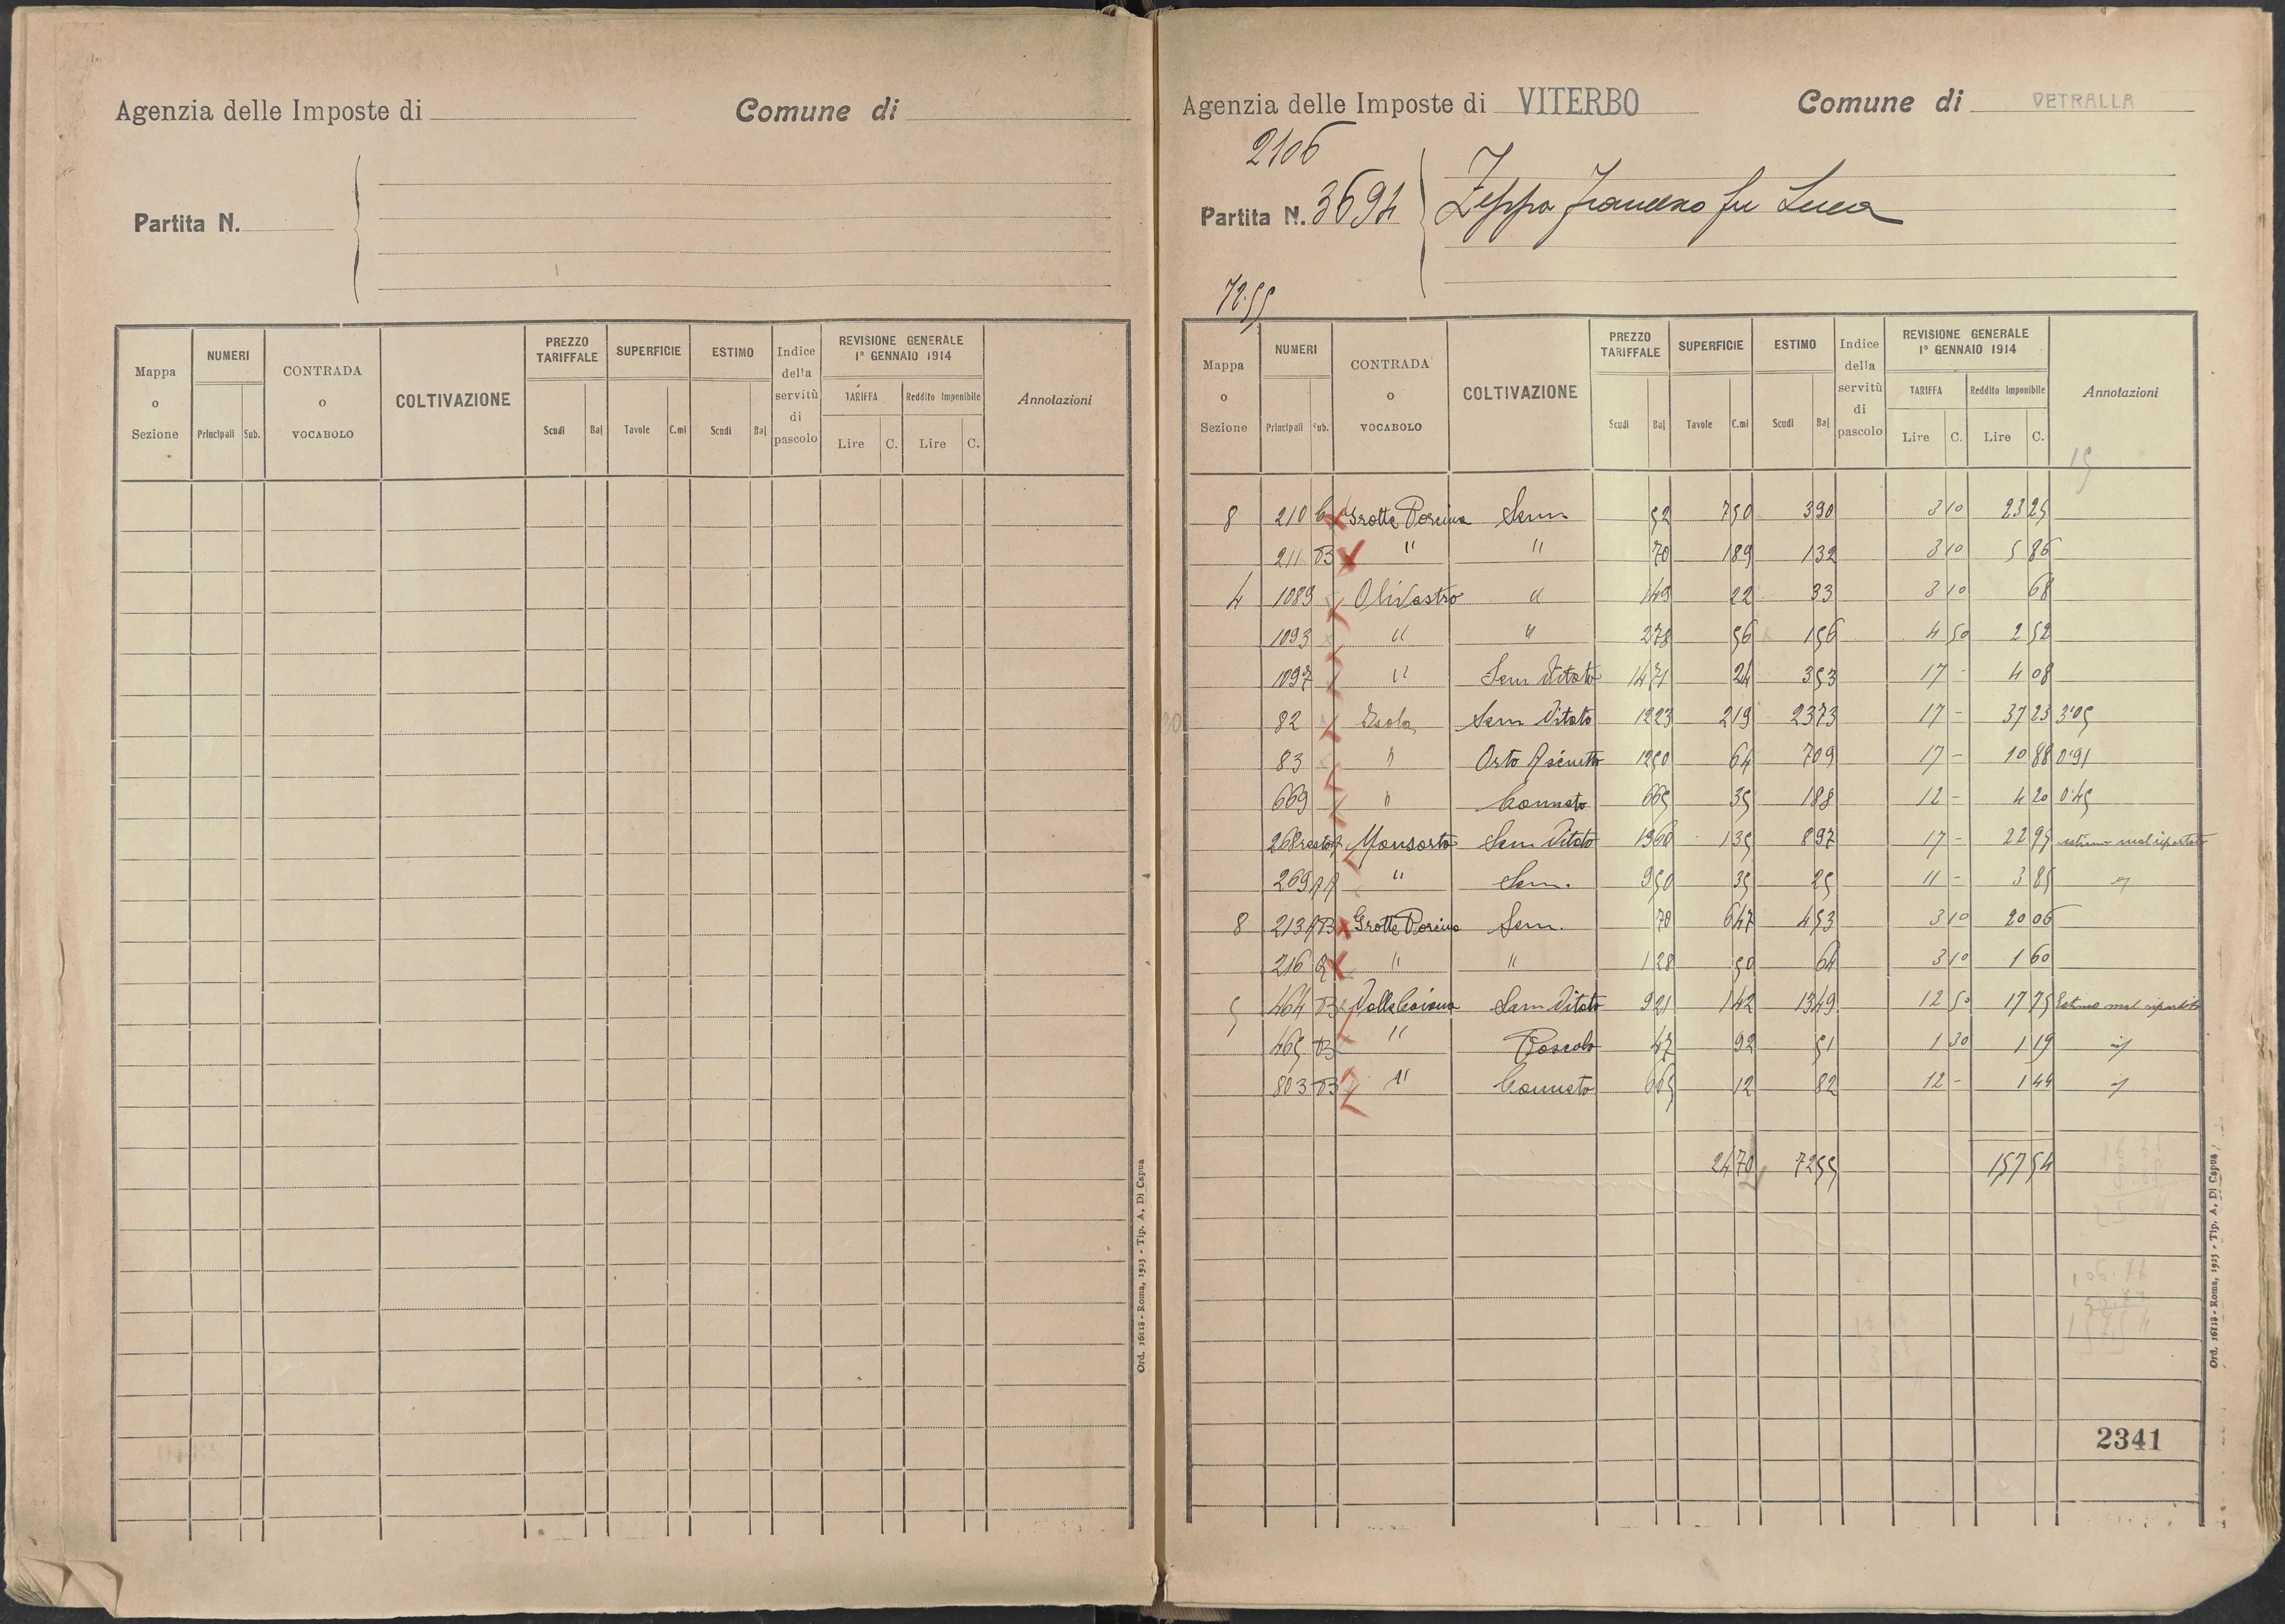 Agenzia delle Imposte di
Comune di
Partita N.
Mappa o Sezione
NUMERI
Principali Sub.
CONTRADA o VOCABOLO
COLTIVAZIONE
PREZZO TARIFFALE
Scudi Baj
SUPERFICIE
Tavole C.mi
ESTIMO
Scudi Baj
Indice della servitù di pascolo
REVISIONE GENERALE
1° GENNAIO 1914
TARIFFA Reddito Imponibile
Lire C. Lire C.
Annotazioni
Ord. 16118 - Roma, 1923 - Tip. A. Di Capua
Agenzia delle Imposte di VITERBO
Comune di VETRALLA
2106
Partita N. 3694 Zeppa Francesco fu Luca
72.55
Mappa o Sezione
NUMERI
Principali Sub.
CONTRADA o VOCABOLO
COLTIVAZIONE
PREZZO TARIFFALE
Scudi Baj
SUPERFICIE
Tavole C.mi
ESTIMO
Scudi Baj
Indice della servitù di pascolo
REVISIONE GENERALE
1° GENNAIO 1914
TARIFFA Reddito Imponibile
Lire C. Lire C.
Annotazioni
15
8 210 Grotte Porcina Sem 52 750 390 3 10 23 25
211 B " " 70 189 132 3 10 5 86
4 1089 Olivastro " 149 22 33 3 10 68
1093 " " 278 56 156 4 50 2 52
1097 " Sem Vitato 1471 24 353 17 - 4 08
82 Isola Sem Vitato 1223 219 2373 17 - 37 23 3.05
83 " Orto Asciutto 1250 64 709 17 - 10 88 0.91
669 " Canneto 665 35 188 12 - 4 20 0.45
268 resto Monsorto Sem Vitato 1360 135 897 17 - 22 95 estimo mal riportato
269 " Sem. 950 35 25 11 - 3 85 "
8 213 AB Grotte Porcina Sem. 70 647 453 3 10 20 06
216 " " 1 28 50 64 3 10 1 60
5 464 B Valle Caiana Sem Vitato 921 142 1349 12 50 17 75 Estimo mal ripartito
465 B " Pascolo 47 92 51 1 30 1 19 "
803 B " Canneto 665 12 82 12 - 1 44 "
24 70 7255 157 54
2341
Ord. 16118 - Roma, 1923 - Tip. A. Di Capua